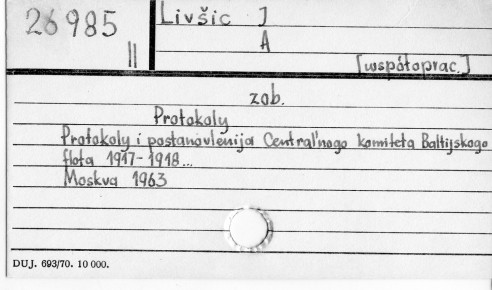 26985
II
Livšic J
A
[współoprac.]
zob.
Protokoly
Protokoly i postanovlenija Central'nogo komiteta Baltijskogo
flota 1917-1918...
Moskva 1963
DUJ. 693/70. 10 000.